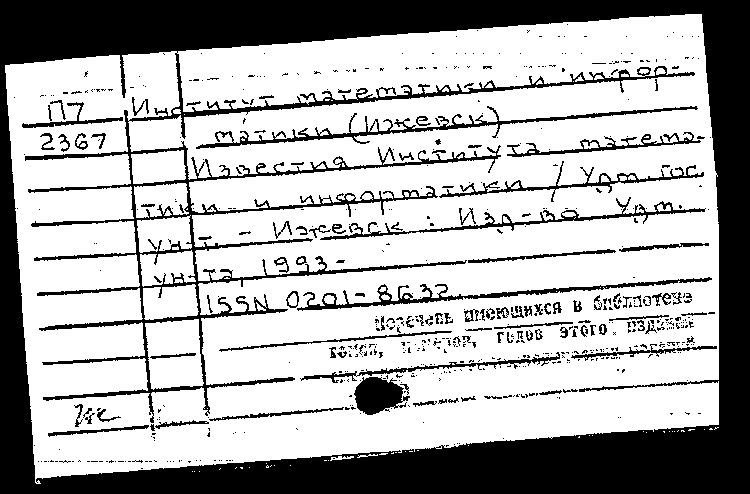 П7 Институт математики и инфор-
2367 матики (Ижевск)
Известия Института матема-
тики и информатики / Удм. гос.
ун-т. - Ижевск : Изд-во Удм.
ун-та, 1993-
ISSN 0201-8632
Перечень имеющихся в библиотеке
томов, номеров, годов этого издания